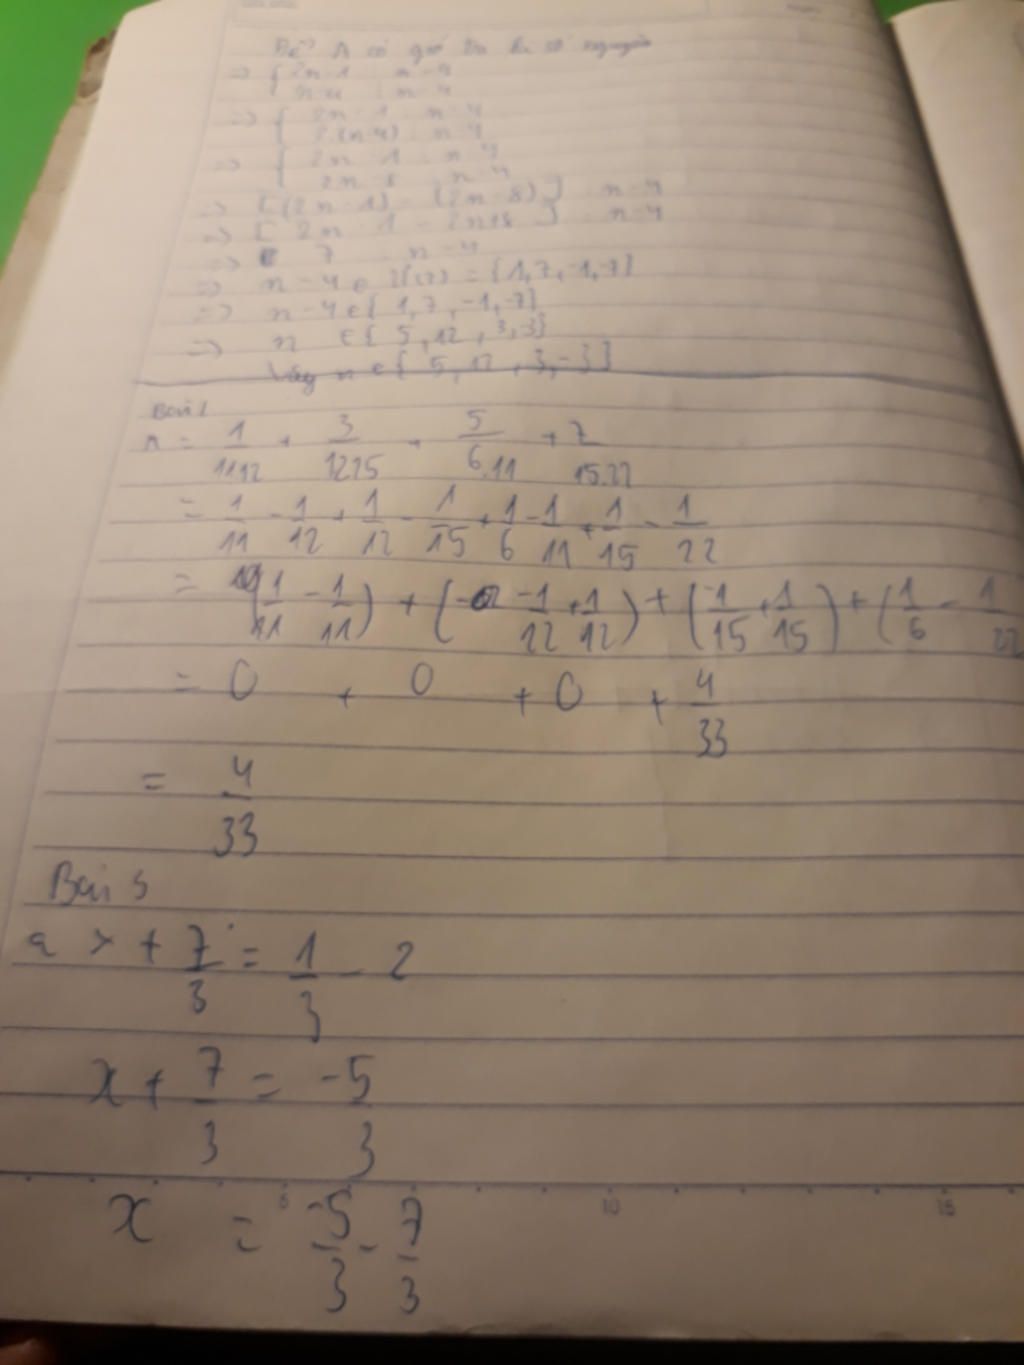 Để A có giá trị là số nguyên
=> { 2n - 1 ⋮ n - 4
n - 4 ⋮ n - 4
=> { 2n - 1 ⋮ n - 4
2.(n-4) ⋮ n - 4
=> { 2n - 1 ⋮ n - 4
2n - 8 ⋮ n - 4
=> [(2n-1) - (2n-8)] ⋮ n-4
=> [2n - 1 - 2n+8] ⋮ n-4
=> 7 ⋮ n-4
=> n-4 ∈ Ư(7) = {1,7,-1,-7}
=> n-4 ∈ {1,7,-1,-7}
=> n ∈ { 5,12,3,-3}
Vậy n ∈ { 5,12,3,-3}
Bài 1
A = 1/11.12 + 3/12.15 + 5/6.11 + 7/15.22
= 1/11 - 1/12 + 1/12 - 1/15 + 1/6 - 1/11 + 1/15 - 1/22
= (1/11 - 1/11) + (-1/12 + 1/12) + (-1/15 + 1/15) + (1/6 - 1/22
= 0 + 0 + 0 + 4/33
= 4/33
Bài 3
a x + 7/3 = 1/3 - 2
x + 7/3 = -5/3
x = -5/3 - 7/3
10
15